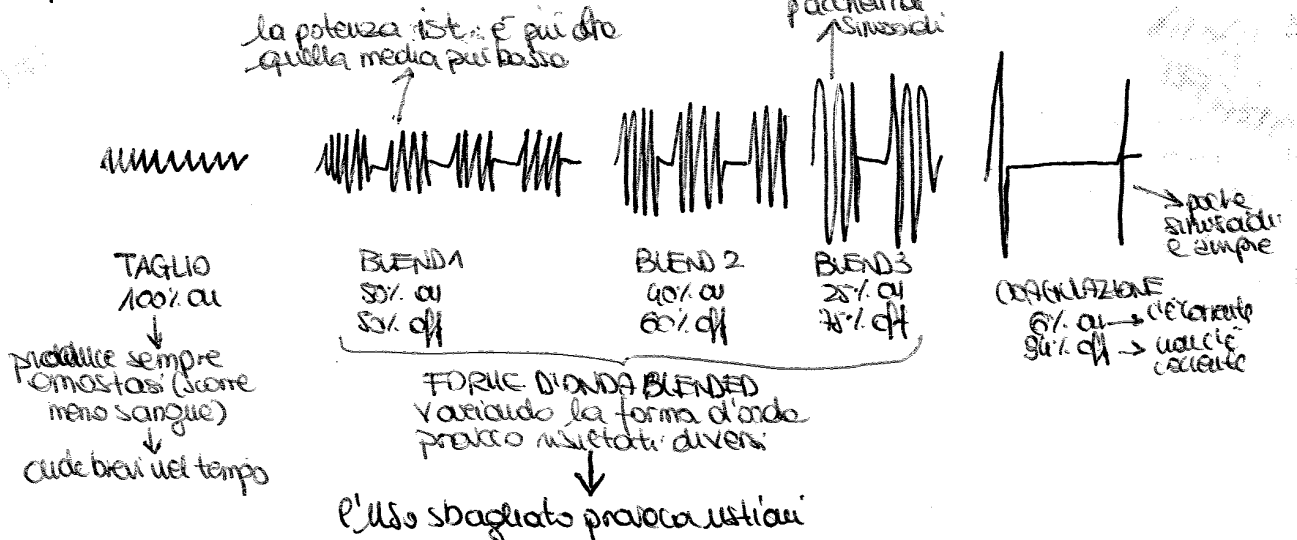 la potenza ist. è più alta
quella media più bassa
pacchetti di
sinusoidi
TAGLIO
100% on
produce sempre
emostasi (scorre
meno sangue)
onde brevi nel tempo
BLEND 1
50% on
50% off
BLEND 2
40% on
60% off
BLEND 3
25% on
75% off
FORME D'ONDA BLENDED
variando la forma d'onda
provoco risultati diversi
l'uso sbagliato provoca ustioni
poche
sinusoidi
e ampie
COAGULAZIONE
6% on → c'è corrente
94% off → non c'è
corrente